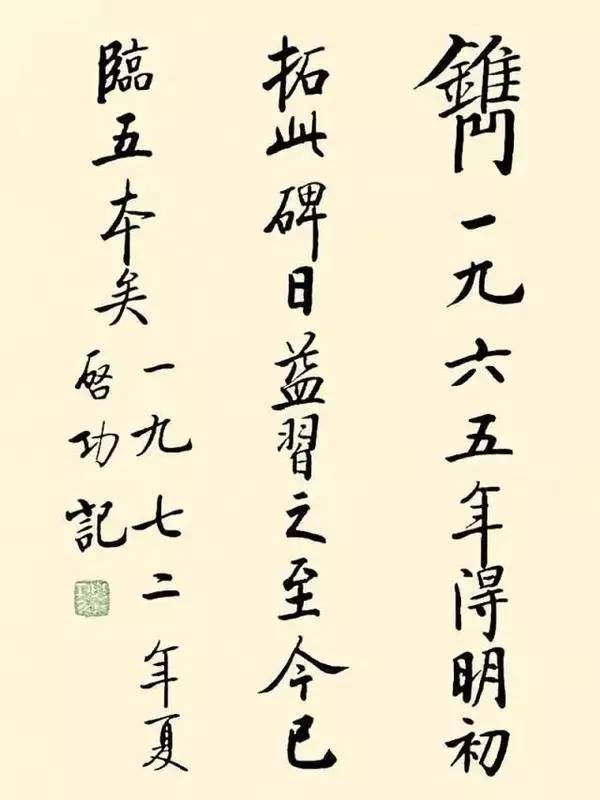 鐫一九六五年得明初
拓此碑日益習之至今已
臨五本矣
一九七二年夏
啓功記